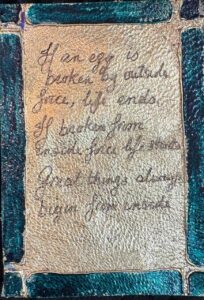 If an egg is
broken by outside
force, life ends.
If broken from
inside force life starts
Great things always
begin from inside